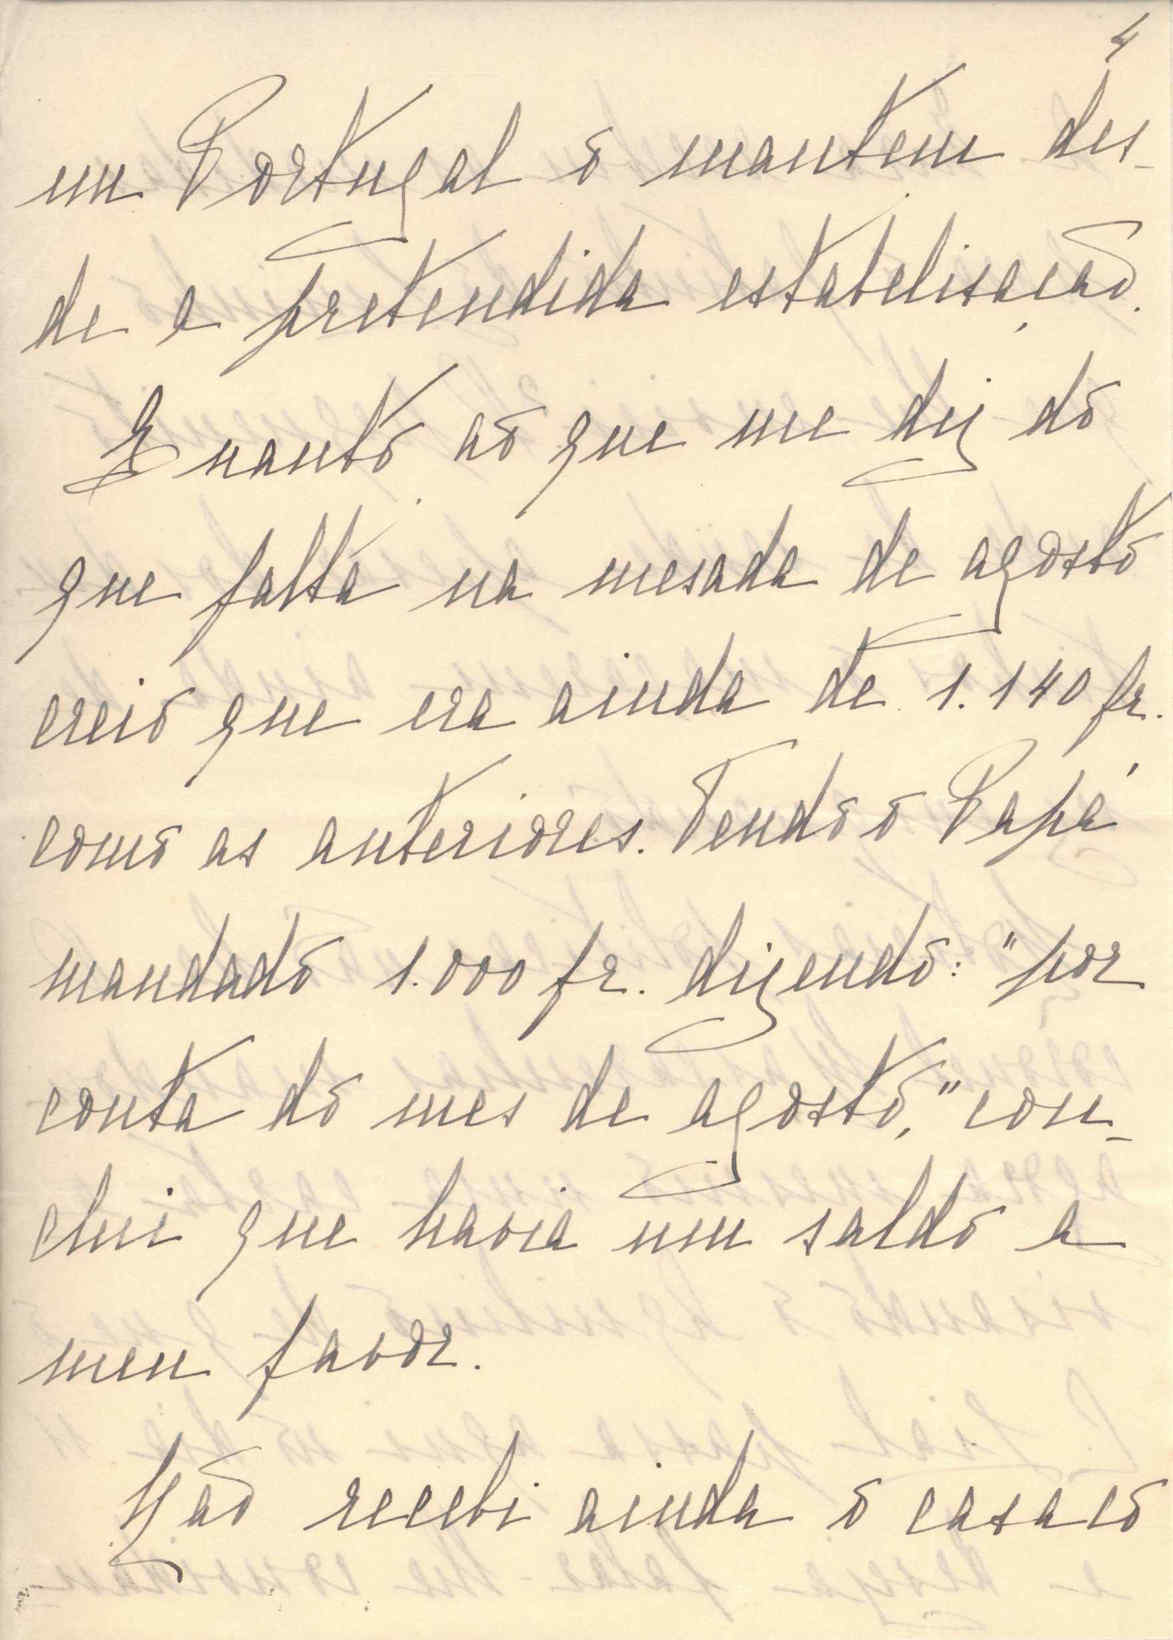 4
em Portugal o mantem des-
de a pretendida estabelisação.
Quanto ao que me diz do
que falta na mesada de agosto
creio que era ainda de 1.140 fr.
como as anteriores. Tendo o Papá
mandado 1.000 fr. dizendo: "por
conta do mes de agosto," con-
clui que havia um saldo a
meu favor.
Não recebi ainda o casaco